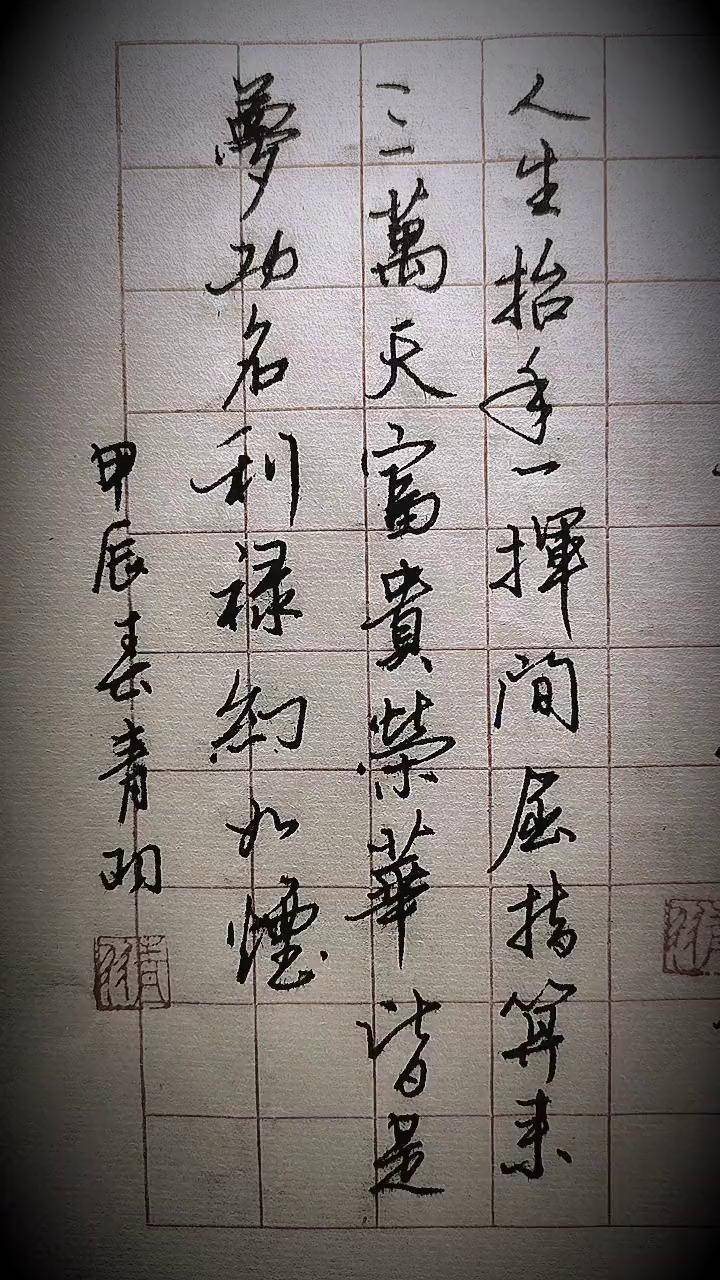 人生抬手一揮间屈指算来
三萬天富貴榮華皆是
夢功名利禄如煙
甲辰春青